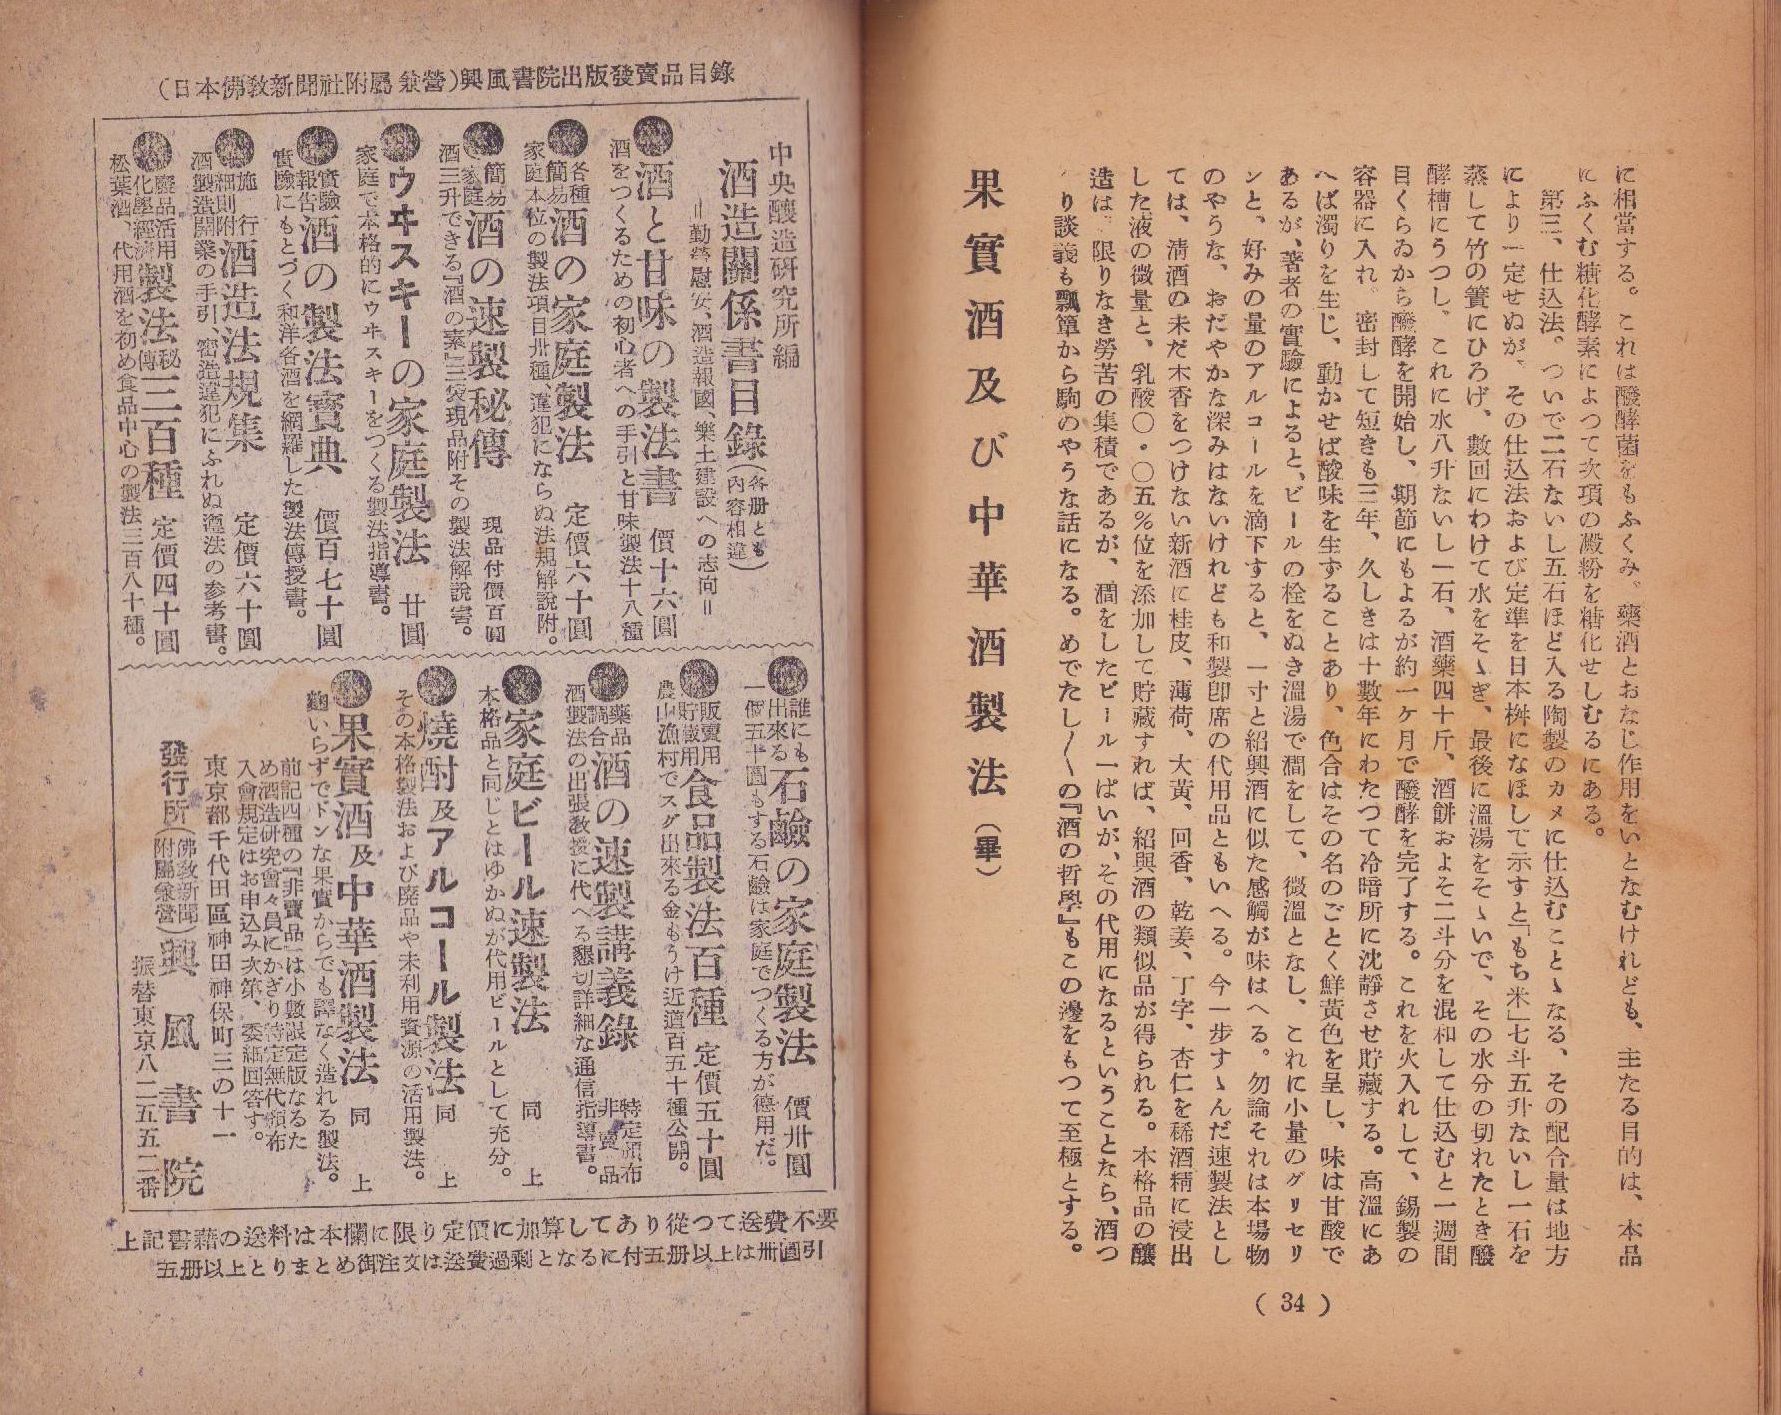 に相當する。これは醱酵菌をもふくみ、藥酒とおなじ作用をいとなむけれども、主たる目的は、本品
にふくむ糖化酵素によつて次項の澱粉を糖化せしむるにある。
第三、仕込法。ついで二石ないし五石ほど入る陶製のカメに仕込むことゝなる、その配合量は地方
により一定せぬが、その仕込法および定準を日本桝になほして示すと「もち米」七斗五升ないし一石を
蒸して竹の簀にひろげ、數回にわけて水をそゝぎ、最後に溫湯をそゝいで、その水分の切れたとき醱
酵槽にうつし、これに水八升ないし一石、酒藥四十斤、酒餅およそ二斗分を混和して仕込むと一週間
目くらゐから醱酵を開始し、期節にもよるが約一ヶ月で醱酵を完了する。これを火入れして、錫製の
容器に入れ、密封して短きも三年、久しきは十數年にわたつて冷暗所に沈靜させ貯藏する。高溫にあ
へば濁りを生じ、動かせば酸味を生ずることあり、色合はその名のごとく鮮黃色を呈し、味は甘酸で
あるが、著者の實驗によると、ビールの栓をぬき溫湯で澗をして、微溫となし、これに小量のグリセリ
ンと、好みの量のアルコールを滴下すると、一寸と紹興酒に似た感觸が味はへる。勿論それは本場物
のやうな、おだやかな深みはないけれども和製卽席の代用品ともいへる。今一步すゝんだ速製法とし
ては、淸酒の未だ木香をつけない新酒に桂皮、薄荷、大黃、回香、乾姜、丁字、杏仁を稀酒精に浸出
した液の微量と、乳酸〇・〇五％位を添加して貯藏すれば、紹興酒の類似品が得られる。本格品の釀
造は、限りなき勞苦の集積であるが、澗をしたビール一ぱいが、その代用になるということなら、酒つ
り談義も瓢簞から駒のやうな話になる。めでたし〱の『酒の哲學』もこの邊をもつて至極とする。
果實酒及び中華酒製法（畢）
( 34 )
（日本佛敎新聞社附屬兼營）興風書院出版發賣品目錄
中央釀造研究所編
酒造關係書目錄（各册とも內容相違）
＝勤勞慰安、酒造報國、樂土建設への志向＝
●酒と甘味の製法書　價十六圓
酒をつくるための初心者への手引と甘味製法十八種
●各種簡易酒の家庭製法　定價六十圓
家庭本位の製法項目卅種、違犯にならぬ法規解說附。
●簡易家庭酒の速製秘傳　現品付價百圓
酒三升できる『酒の素』三袋現品附その製法解說書。
●ウヰスキーの家庭製法　廿圓
家庭で本格的にウヰスキーをつくる製法指導書。
●實驗報告酒の製法寶典　價百七十圓
實驗にもとづく和洋各酒を網羅した製法傳授書。
●施行細則附酒造法規集　定價六十圓
酒製造開業の手引、密造違犯にふれぬ遵法の參考書。
●廢品活用化學經濟製法秘傳三百種　定價四十圓
松葉酒、代用酒を初め食品中心の製法三百八十種。
●誰にも出來る石鹼の家庭製法　價卅圓
一個五十圓もする石鹼は家庭でつくる方が德用だ。
●販賣用貯藏用食品製法百種　定價五十圓
農山漁村でスグ出來る金もうけ近道百五十種公開。
●藥品調合酒の速製講義錄　特定頒布非賣品
酒製法の出張敎授に代へる懇切詳細な通信指導書。
●家庭ビール速製法　同上
本格品と同じとはゆかぬが代用ビールとして充分。
●燒酎及アルコール製法　同上
その本格製法および廢品や未利用資源の活用製法。
●果實酒及中華酒製法　同上
麴いらずでドンな果實からでも譯なく造れる製法。
前記四種の『非賣品』は小數限定版なるた
め酒造研究會々員にかぎり特定無代頒布
入會規定はお申込み次第、委細回答す。
東京都千代田區神田神保町三の十一
發行所（佛敎新聞附屬兼營）興風書院
振替東京八二五五二番
上記書籍の送料は本欄に限り定價に加算してあり從つて送費不要
五册以上とりまとめ御注文は送費過剩となるに付五册以上は卅圓引